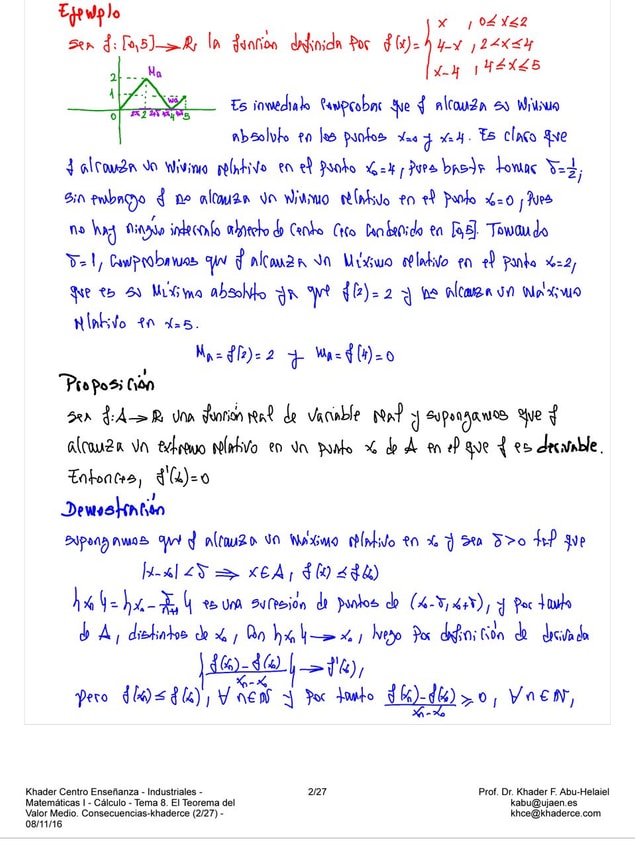 Ejemplo
Sea f:[0,5]→ℝ, la función definida por f(x)={ x , 0≤x≤2
4-x , 2<x≤4
x-4 , 4≤x≤5
2 Ma
1 ma
0 2 4 5
Es inmediato comprobar que f alcanza su mínimo
absoluto en los puntos x=0 y x=4. Es claro que
f alcanza un mínimo relativo en el punto x₀=4, pues basta tomar δ=1/2;
sin embargo f no alcanza un mínimo relativo en el punto x₀=0, pues
no hay ningún intervalo abierto de centro cero contenido en [0,5]. Tomando
δ=1, comprobamos que f alcanza un máximo relativo en el punto x₀=2,
que es su máximo absoluto ya que f(2)=2 y no alcanza un máximo
relativo en x=5.
Ma=f(2)=2 y ma=f(4)=0
Proposición
Sea f:A→ℝ una función real de variable real y supongamos que f
alcanza un extremo relativo en un punto x₀ de A en el que f es derivable.
Entonces, f'(x₀)=0
Demostración
Supongamos que f alcanza un máximo relativo en x₀ y sea δ>0 tal que
|x-x₀|<δ ⇒ x∈A, f(x)≤f(x₀)
{xₙ}={x₀-δ/(n+1)} es una sucesión de puntos de (x₀-δ,x₀+δ), y por tanto
de A, distintos de x₀, con {xₙ}→x₀, luego por definición de derivada
{(f(xₙ)-f(x₀))/(xₙ-x₀)}→f'(x₀),
pero f(xₙ)≤f(x₀), ∀n∈ℕ y por tanto (f(xₙ)-f(x₀))/(xₙ-x₀)≥0, ∀n∈ℕ,
Khader Centro Enseñanza - Industriales -
Matemáticas I - Cálculo - Tema 8. El Teorema del
Valor Medio. Consecuencias-khaderce (2/27) -
08/11/16
2/27
Prof. Dr. Khader F. Abu-Helaiel
kabu@ujaen.es
khce@khaderce.com